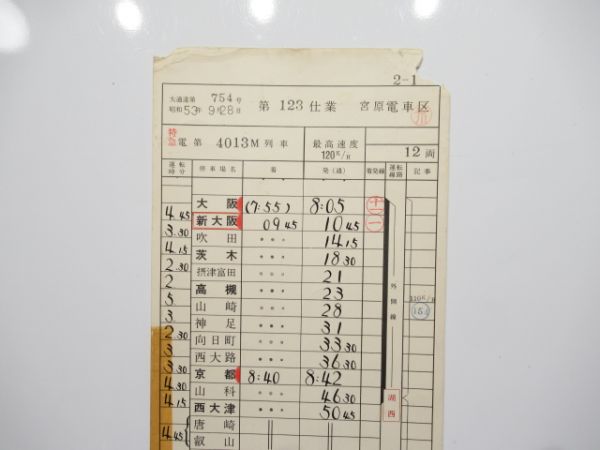 2-1
大通達第 754号
昭和53年 9月28日 第 123 仕業 宮原電車区
特急 電 第 4013M 列車 最高速度 120K/H 12両
運転時分 停車場名 着 発(通) 着発線 運転線路 記事
大阪 (7:55) 8:05 十一
4.45
新大阪 09 45 10 45
3.30
吹田 ・・・ 14 15
4.15
茨木 ・・・ 18 30
2.30
摂津富田 ・・・ 21
2
高槻 ・・・ 23
5
山崎 ・・・ 28
3
神足 ・・・ 31
2.30
向日町 ・・・ 33 30
3
西大路 ・・・ 36 30
3.30
京都 8:40 8:42
4.30
山科 ・・・ 46 30
4.15
西大津 ・・・ 50 45
唐崎
4.45
叡山
外側線
湖西
110K/H